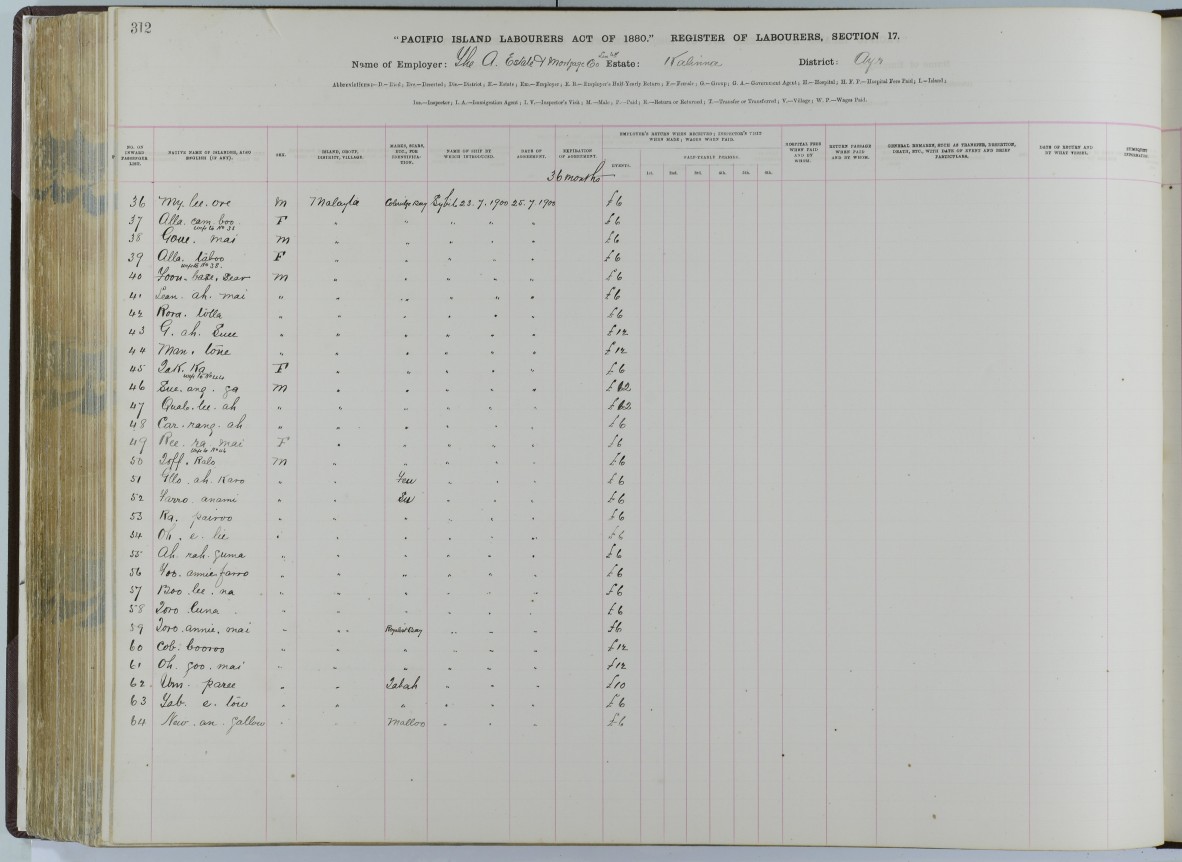 312
"PACIFIC ISLAND LABOURERS ACT OF 1880." REGISTER OF LABOURERS, SECTION 17.
Name of Employer: The A. Estate & Mortgage Co Estate: Kalinna District: Ayr
Abbreviations:—D.—Died; Des.—Deserted; Dis.—District; E.—Estate; Em.—Employer; E. R.—Employer's Half-Yearly Return; F.—Female; G.—Group; G. A.—Government Agent; H.—Hospital; H. F. P.—Hospital Fees Paid; I.—Island;
Ins.—Inspector; I. A.—Immigration Agent; I. V.—Inspector's Visit; M.—Male; P.—Paid; R.—Return or Returned; T.—Transfer or Transferred; V.—Village; W. P.—Wages Paid.
NO. ON INWARD PASSENGER LIST. NATIVE NAME OF ISLANDER, ALSO ENGLISH (IF ANY). SEX. ISLAND, GROUP, DISTRICT, VILLAGE. MARKS, SCARS, ETC., FOR IDENTIFICATION. NAME OF SHIP BY WHICH INTRODUCED. DATE OF AGREEMENT. EXPIRATION OF AGREEMENT. EMPLOYER'S RETURN WHEN RECEIVED; INSPECTOR'S VISIT WHEN MADE; WAGES WHEN PAID. EVENTS. HALF-YEARLY PERIODS. 1st. 2nd. 3rd. 4th. 5th. 6th. HOSPITAL FEES WHEN PAID AND BY WHOM. RETURN PASSAGE WHEN PAID AND BY WHOM. GENERAL REMARKS, SUCH AS TRANSFER, DESERTION, DEATH, ETC., WITH DATE OF EVENT AND BRIEF PARTICULARS. DATE OF RETURN AND BY WHAT VESSEL. SUBSEQUENT INFORMATION.
36 months
36 My. lee. ore M Malayta Coleridge Bay Sybil 23. 7. 1900 25. 7. 1900 £6
37 Alla. cam. boo. F " " " " " " £6
wife to No 36
38 Gone. mai M " " " " " £6
39 Alla. taboo F " " " " " £6
wife to No 38.
40 Foon. base. Sear M " " " " " £6
41 Lean. ah. mai " " " " " " £6
42 Rora. tolla " " " " " " £6
43 G. ah. Suee " " " " " " £12
44 Man. tone " " " " " " £12
45 Tak. Ka F " " " " " £6
wife to No 44
46 Sue. ang. ga M " " " " " £12
47 Qualo. lee. ah " " " " " " £12
48 Car. rang. ah " " " " " " £6
49 Ree. ra. mai F " " " " " £6
50 Toff. Kalo M " " " " " £6
51 Allo. ah. Karo " " Feu " " " £6
52 Farro. anami " " Su " " " £6
53 Ra. pairoo " " " " " " £6
54 Oh. e. lie " " " " " " £6
55 Ah. rah. guma " " " " " " £6
56 Foo. annie. farro " " " " " " £6
57 Boo. lee. na " " " " " " £6
58 Toro. luna " " " " " " £6
59 Toro. annie. mai " " Royalist Bay " " " £6
60 Cob. booroo " " " " " " £12
61 Oh. goo. mai " " " " " " £12
62 Um. paree " " Tabah " " " £10
63 Tab. e. tow " " " " " " £6
64 New. an. gallow " " Malloo " " " £6